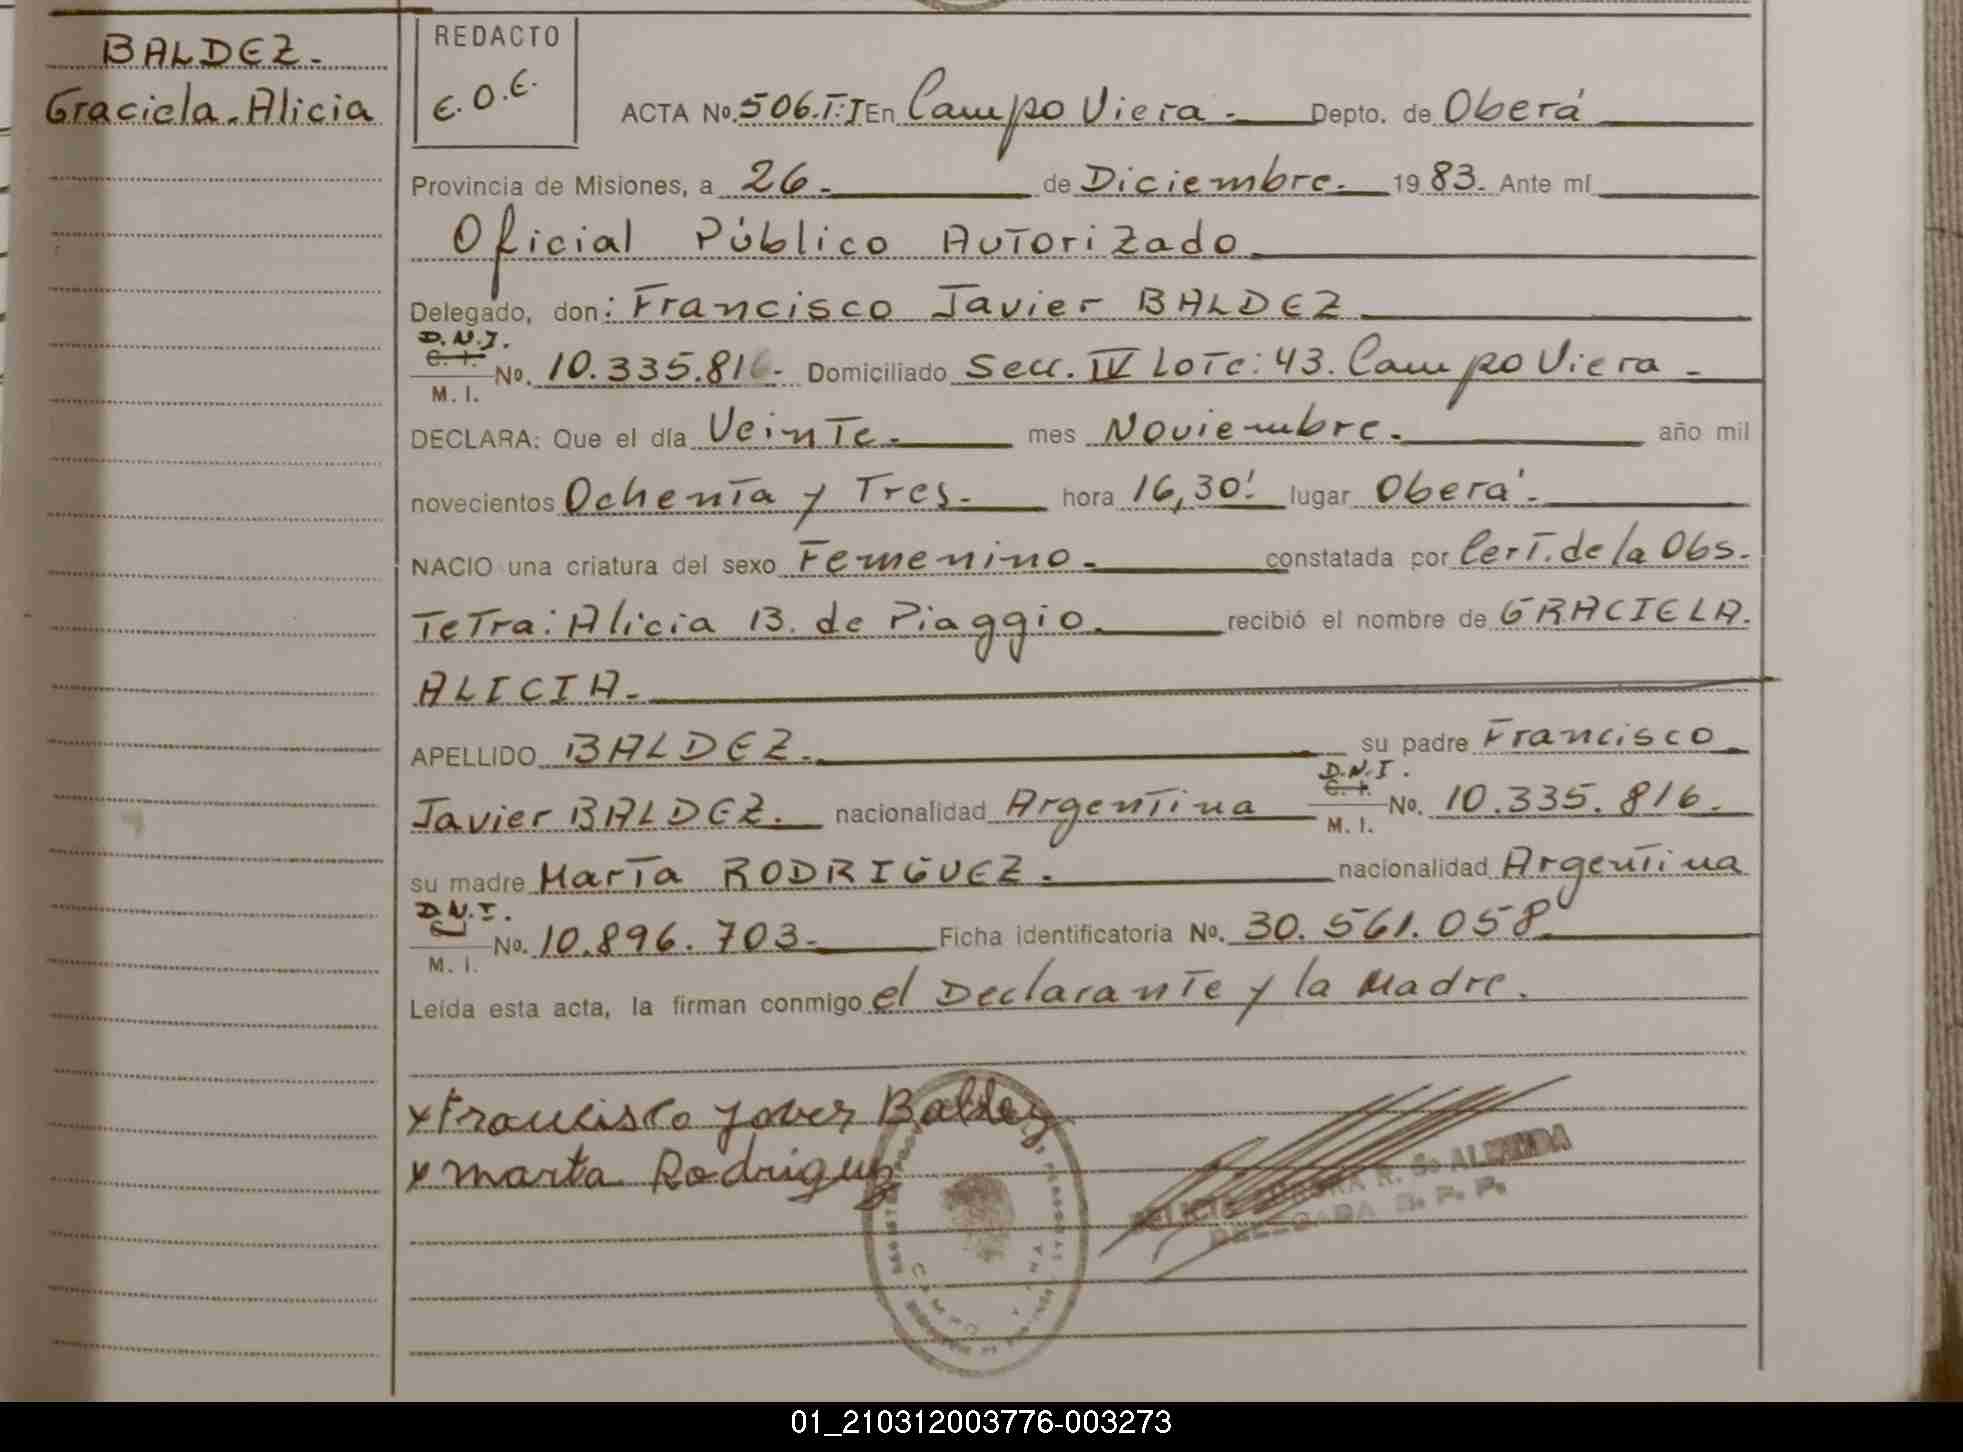 BALDEZ.
Graciela. Alicia
REDACTO
E.O.E.
ACTA No. 506.T:I En Campo Viera. Depto. de Oberá
Provincia de Misiones, a 26. de Diciembre. 19 83. Ante mí
Oficial Público Autorizado
Delegado, don: Francisco Javier BALDEZ
D.N.I.
C. I.
M. I.
No. 10.335.816. Domiciliado Secc. IV Lote: 43. Campo Viera.
DECLARA: Que el día Veinte. mes Noviembre. año mil
novecientos Ochenta y Tres. hora 16,30! lugar Oberá.
NACIO una criatura del sexo Femenino. constatada por Cert. de la Obs.
Tetra: Alicia B. de Piaggio. recibió el nombre de GRACIELA.
ALICIA.
APELLIDO BALDEZ. su padre Francisco
Javier BALDEZ. nacionalidad Argentina D.N.I. C. I. M. I. No. 10.335.816.
su madre Marta RODRIGUEZ. nacionalidad Argentina
D.N.I.
M. I.
No. 10.896.703. Ficha identificatoria No. 30.561.058
Leída esta acta, la firman conmigo el Declarante y la Madre.
x Francisco Javer Baldez
x Marta Rodriguez
R. G. ALMADA
DELEGADA R. P. P.
CAMPO
01_210312003776-003273